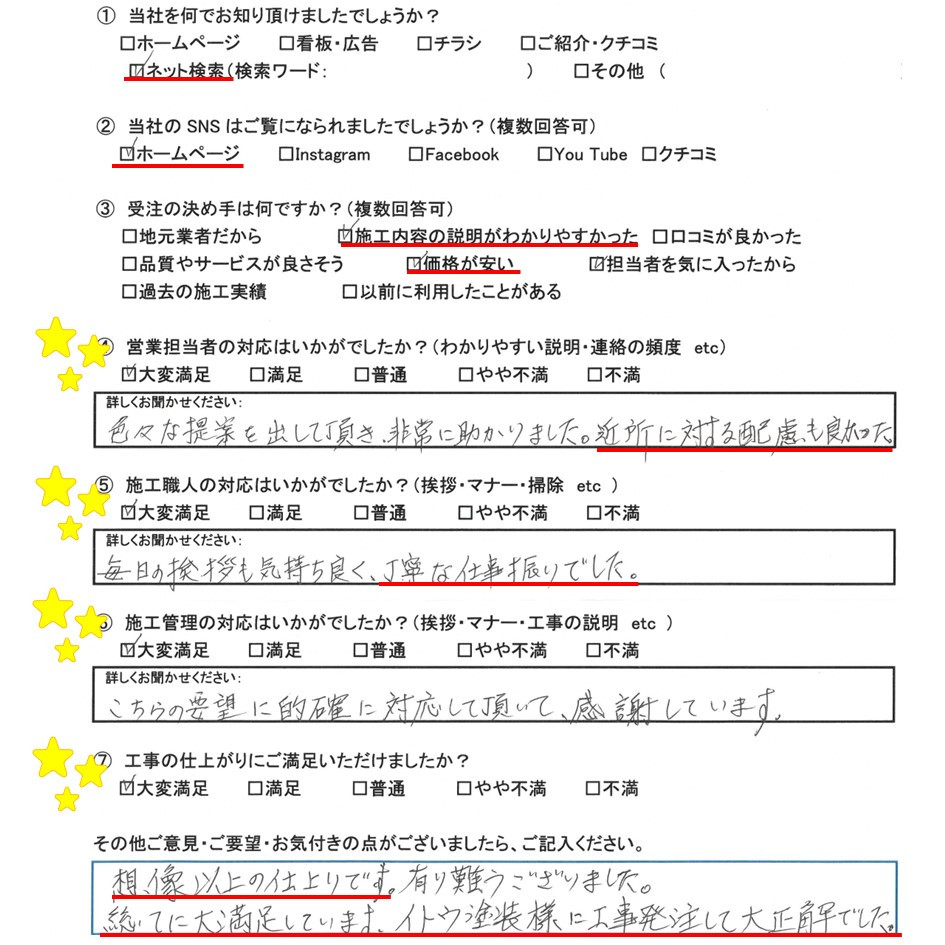 ① 当社を何でお知り頂けましたでしょうか？
□ホームページ □看板・広告 □チラシ □ご紹介・クチコミ
☑ネット検索（検索ワード： ） □その他 （
② 当社の SNS はご覧になられましたでしょうか？（複数回答可）
☑ホームページ □Instagram □Facebook □You Tube □クチコミ
③ 受注の決め手は何ですか？（複数回答可）
□地元業者だから ☑施工内容の説明がわかりやすかった □口コミが良かった
□品質やサービスが良さそう ☑価格が安い ☑担当者を気に入ったから
□過去の施工実績 □以前に利用したことがある
④ 営業担当者の対応はいかがでしたか？（わかりやすい説明・連絡の頻度 etc）
☑大変満足 □満足 □普通 □やや不満 □不満
詳しくお聞かせください：
色々な提案を出して頂き、非常に助かりました。近所に対する配慮も良かった。
⑤ 施工職人の対応はいかがでしたか？（挨拶・マナー・掃除 etc ）
☑大変満足 □満足 □普通 □やや不満 □不満
詳しくお聞かせください：
毎日の挨拶も気持ち良く、丁寧な仕事振りでした。
⑥ 施工管理の対応はいかがでしたか？（挨拶・マナー・工事の説明 etc ）
☑大変満足 □満足 □普通 □やや不満 □不満
詳しくお聞かせください：
こちらの要望に的確に対応して頂いて、感謝しています。
⑦ 工事の仕上がりにご満足いただけましたか？
☑大変満足 □満足 □普通 □やや不満 □不満
その他ご意見・ご要望・お気付きの点がございましたら、ご記入ください。
想像以上の仕上りです。有り難うございました。
総てに大満足しています。イトウ塗装様に工事発注して大正解でした。